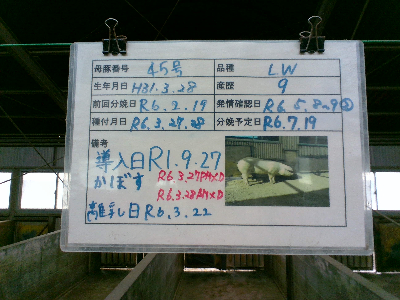 母豚番号 45号 品種 LW
生年月日 H31.3.28 産歴 9
前回分娩日 R6.2.19 発情確認日 R6.5.8
種付月日 R6.3.27.28 分娩予定日 R6.7.19
備考
導入日R1.9.27
かぼす R6.3.27PM×D
R6.3.28AM×D
離乳日R6.3.22